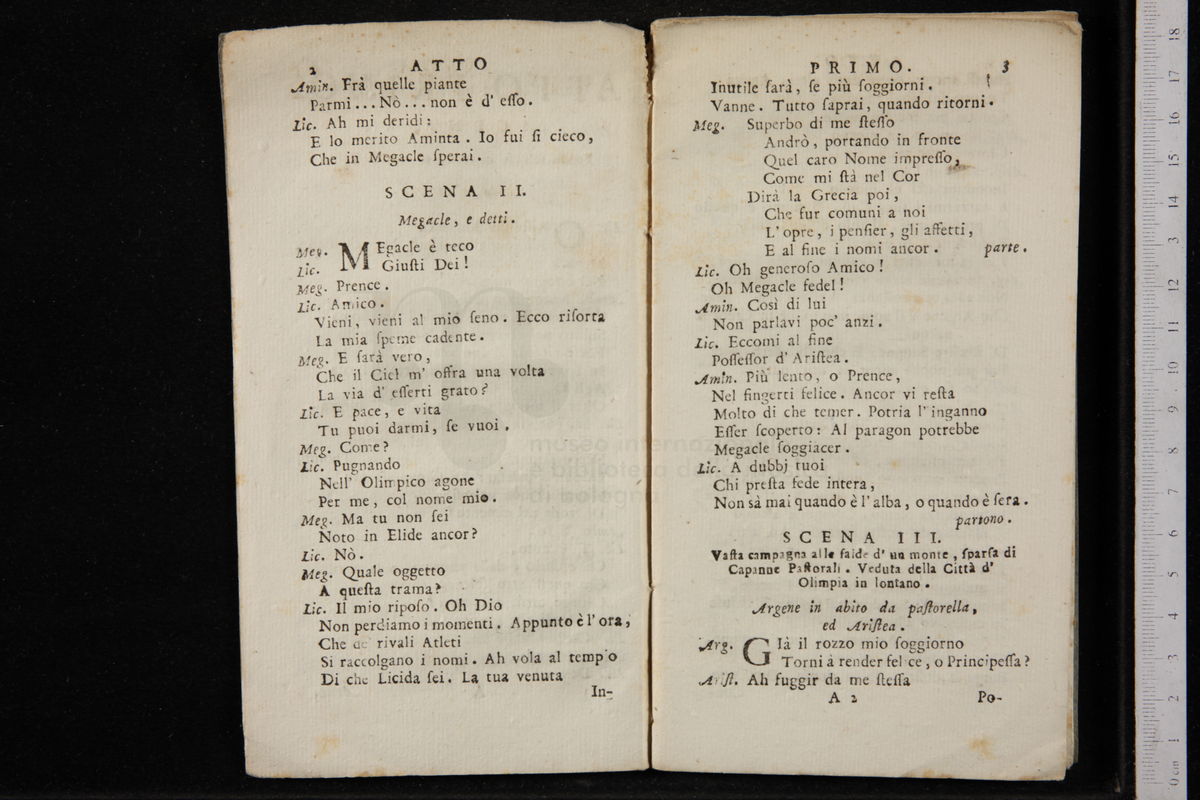 2 ATTO
Amin. Frà quelle piante
Parmi... Nò... non è d' eſſo.
Lic. Ah mi deridi:
E lo merito Aminta. Io fui ſi cieco,
Che in Megacle ſperai.
SCENA II.
Megacle, e detti.
Meg. MEgacle è teco
Lic. Giuſti Dei!
Meg. Prence.
Lic. Amico.
Vieni, vieni al mio ſeno. Ecco riſorta
La mia ſpeme cadente.
Meg. E ſarà vero,
Che il Ciel m' offra una volta
La via d' eſſerti grato?
Lic. E pace, e vita
Tu puoi darmi, ſe vuoi.
Meg. Come?
Lic. Pugnando
Nell' Olimpico agone
Per me, col nome mio.
Meg. Ma tu non ſei
Noto in Elide ancor?
Lic. Nò.
Meg. Quale oggetto
A queſta trama?
Lic. Il mio ripoſo. Oh Dio
Non perdiamo i momenti. Appunto è l' ora,
Che de' rivali Atleti
Si raccolgano i nomi. Ah vola al tempio
Di che Licida ſei. La tua venuta
In-
PRIMO. 3
Inutile ſarà, ſe più ſoggiorni.
Vanne. Tutto ſaprai, quando ritorni.
Meg. Superbo di me ſteſſo
Andrò, portando in fronte
Quel caro Nome impreſſo,
Come mi ſtà nel Cor
Dirà la Grecia poi,
Che fur comuni a noi
L' opre, i penſier, gli affetti,
E al fine i nomi ancor. parte.
Lic. Oh generoſo Amico!
Oh Megacle fedel!
Amin. Così di lui
Non parlavi poc' anzi.
Lic. Eccomi al fine
Poſſeſſor d' Ariſtea.
Amin. Più lento, o Prence,
Nel fingerti felice. Ancor vi reſta
Molto di che temer. Potria l' inganno
Eſſer ſcoperto: Al paragon potrebbe
Megacle ſoggiacer.
Lic. A dubbj tuoi
Chi preſta fede intera,
Non sà mai quando è l' alba, o quando è ſera.
partono.
SCENA III.
Vaſta campagna alle falde d' un monte, ſparſa di
Capanne Paſtorali. Veduta della Città d'
Olimpia in lontano.
Argene in abito da paſtorella,
ed Ariſtea.
Arg. GIà il rozzo mio ſoggiorno
Torni à render felice, o Principeſſa?
Ariſt. Ah fuggir da me ſteſſa
A 2 Po-
museo internaz
e biblioteca de
di bologna
0 cm 1 2 3 4 5 6 7 8 9 10 11 12 13 14 15 16 17 18